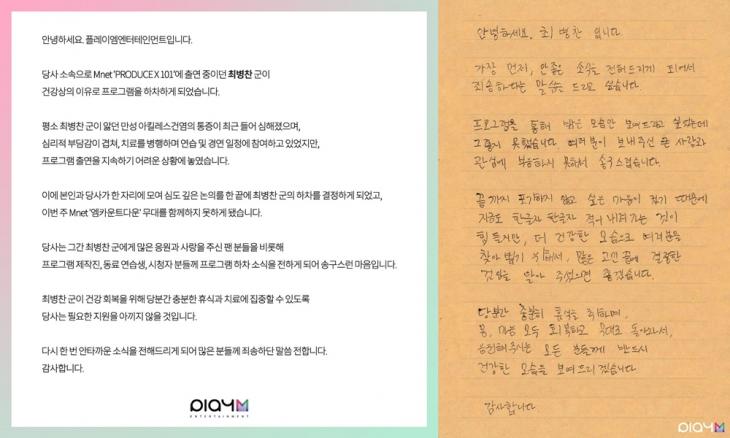 안녕하세요. 플레이엠엔터테인먼트입니다.
당사 소속으로 Mnet 'PRODUCE X 101'에 출연 중이던 최병찬 군이
건강상의 이유로 프로그램을 하차하게 되었습니다.
평소 최병찬 군이 앓던 만성 아킬레스건염의 통증이 최근 들어 심해졌으며,
심리적 부담감이 겹쳐, 치료를 병행하며 연습 및 경연 일정에 참여하고 있었지만,
프로그램 출연을 지속하기 어려운 상황에 놓였습니다.
이에 본인과 당사가 한 자리에 모여 심도 깊은 논의를 한 끝에 최병찬 군의 하차를 결정하게 되었고,
이번 주 Mnet '엠카운트다운' 무대를 함께하지 못하게 됐습니다.
당사는 그간 최병찬 군에게 많은 응원과 사랑을 주신 팬 분들을 비롯해
프로그램 제작진, 동료 연습생, 시청자 분들께 프로그램 하차 소식을 전하게 되어 송구스런 마음입니다.
최병찬 군이 건강 회복을 위해 당분간 충분한 휴식과 치료에 집중할 수 있도록
당사는 필요한 지원을 아끼지 않을 것입니다.
다시 한 번 안타까운 소식을 전해드리게 되어 많은 분들께 죄송하단 말씀 전합니다.
감사합니다.
PLAYM
ENTERTAINMENT
안녕하세요. 최병찬 입니다
가장 먼저, 안좋은 소식을 전해드리게 되어서
죄송하다는 말씀을 드리고 싶습니다.
프로그램을 통해 밝은 모습만 보여드리고 싶었는데
그렇지 못했습니다 여러분이 보내주신 큰 사랑과
관심에 부응하지 못해서 송구스럽습니다.
끝까지 포기하지 않고 싶은 마음이 컸기 때문에
지금도 한글자 한글자 적어 내려가는 것이
힘들지만, 더 건강한 모습으로 여러분을
찾아 뵙기 위해서, 많은 고민 끝에 결정한
것임을 알아 주셨으면 좋겠습니다.
당분간 충분히 휴식을 취하며,
몸, 마음 모두 회복하고 그대로 돌아와서,
응원해주시는 모든 분들께 반드시
건강한 모습을 보여드리겠습니다
감사합니다
PLAYM